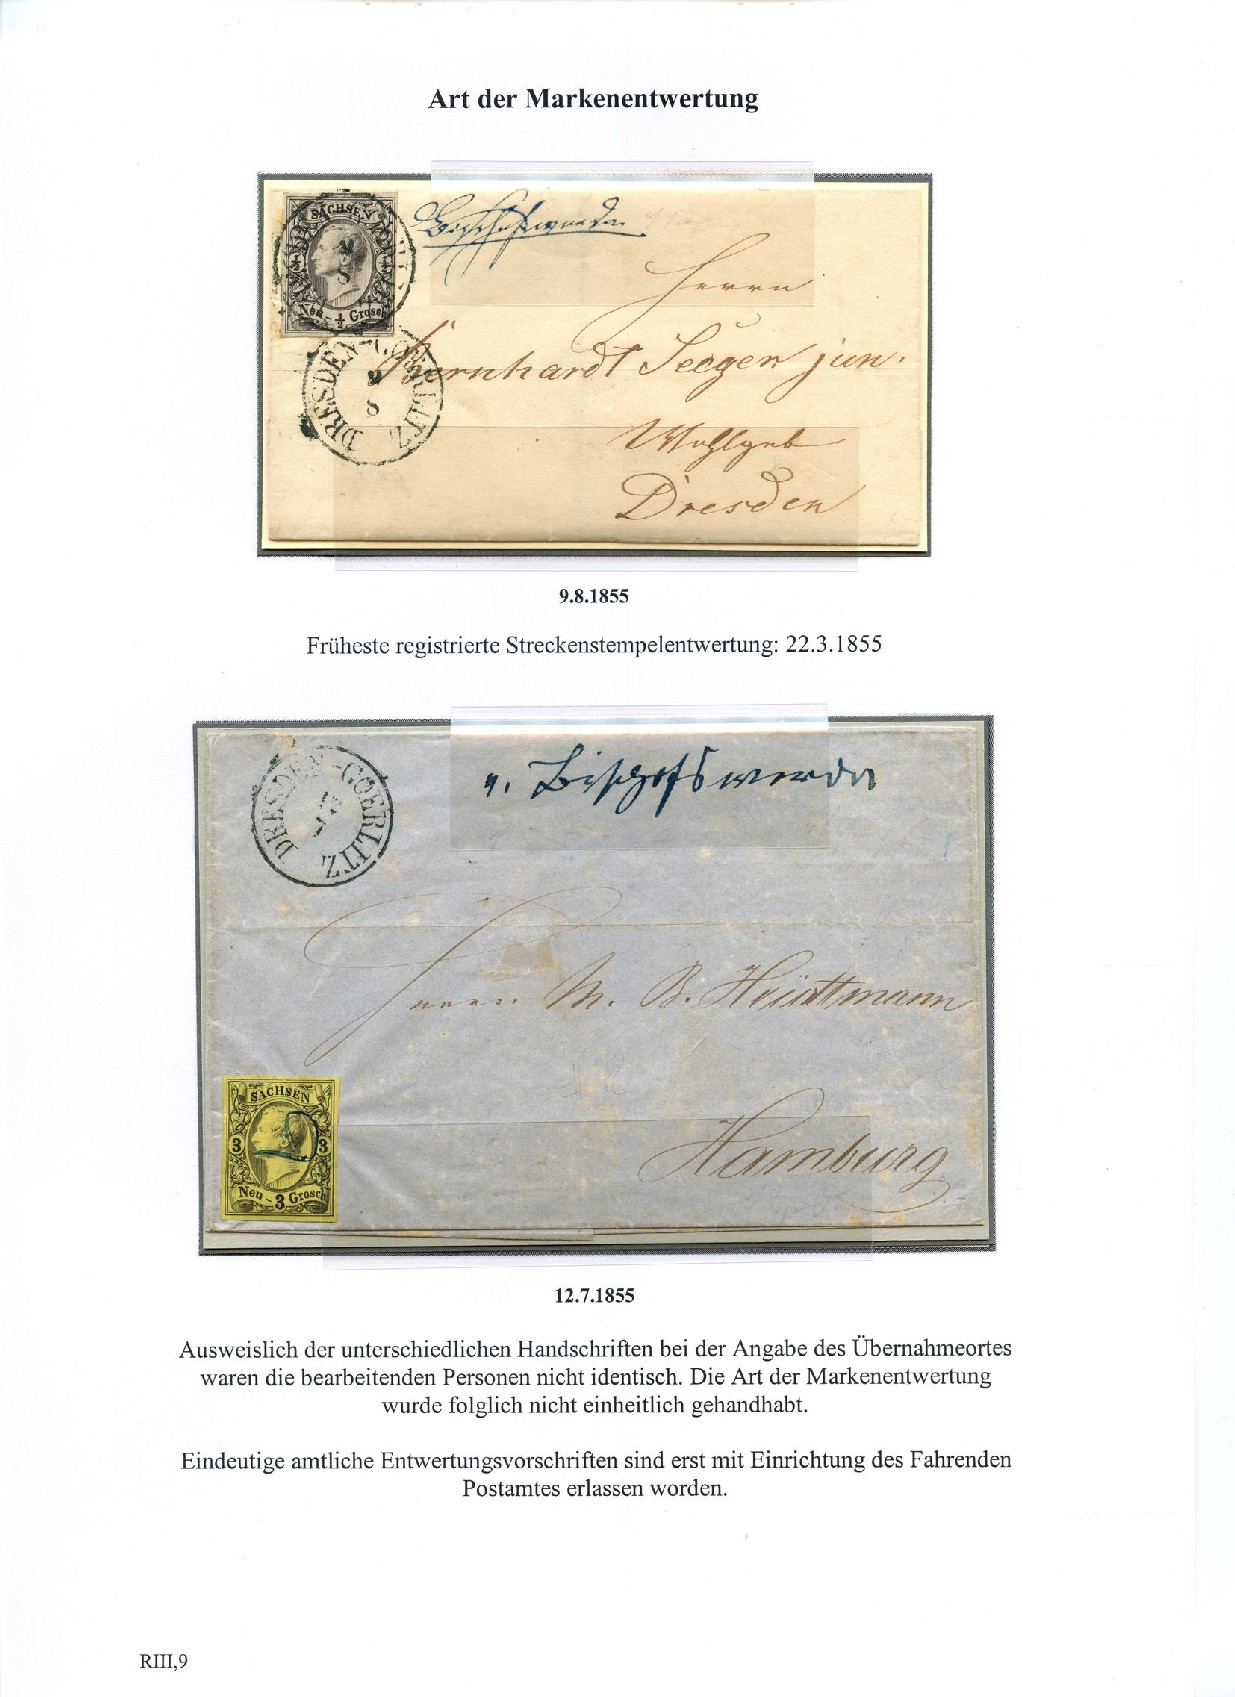 Art der Markenentwertung
SACHSEN
Neu - ½ Grosch
Bischofswerda
Herrn
Bernhardt Seegen jun.
DRESDEN-GOERLITZ
9
8
Wohlgeb
Dresden
9.8.1855
Früheste registrierte Streckenstempelentwertung: 22.3.1855
DRESDEN-GOERLITZ
v. Bischofswerda
Herrn M. B.
Hamburg
SACHSEN
3 3
Neu - 3 Grosch
12.7.1855
Ausweislich der unterschiedlichen Handschriften bei der Angabe des Übernahmeortes
waren die bearbeitenden Personen nicht identisch. Die Art der Markenentwertung
wurde folglich nicht einheitlich gehandhabt.
Eindeutige amtliche Entwertungsvorschriften sind erst mit Einrichtung des Fahrenden
Postamtes erlassen worden.
RIII,9